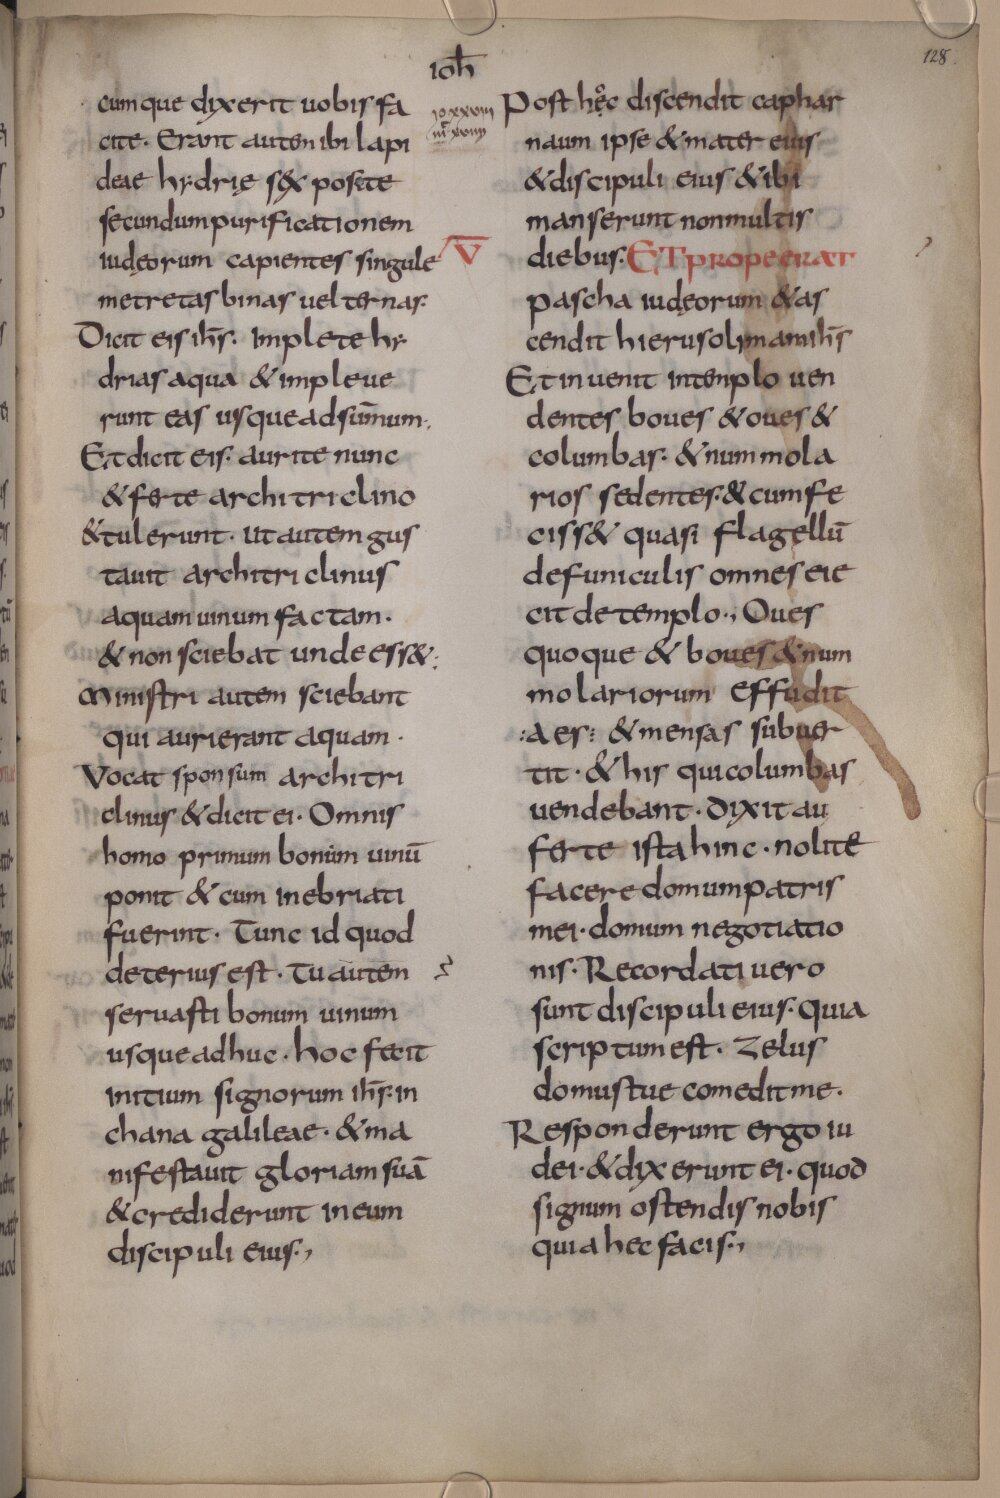 ioh̄
128.
cumque dixerit uobis fa
cite. Erant autem ibi lapi
deae hydrię sex posite
secundum purificationem
iudęorum capientes singule
metretas binas uel ternas.
Dicit eis ihs̄. Implete hy
drias aqua & impleue
runt eas usque ad sum̄mum.
Et dicit eis. aurite nunc
& ferte architriclino
& tulerunt. Ut autem gus
tauit architriclinus
aquam uinum factam.
& non sciebat unde ess&.
Ministri autem sciebant
qui aurierant aquam.
Vocat sponsum architri
clinus & dicit ei. Omnis
homo primum bonum uinū
ponit & cum inebriati
fuerint. Tunc id quod
deterius est. Tu autem
seruasti bonum uinum
usque adhuc. hoc fecit
initium signorum ihs̄. in
chana galileae. & ma
nifestauit gloriam suā
& crediderunt in eum
discipuli eius.,
V
Post hęc discendit caphar
naum ipse & mater eius
& discipuli eius & ibi
manserunt non multis
diebus. ET PROPE ERAT
pascha iudęorum & as
cendit hierusolimam ihs̄
Et inuenit in templo uen
dentes boues & oues &
columbas. & nummola
rios sedentes. & cum fe
ciss& quasi flagellū
de funiculis omnes eie
cit de templo., Oues
quoque & boues & num
molariorum effudit
:aes: & mensas subuer
tit. & his qui columbas
uendebant. dixit au
ferte ista hinc. nolite
facere domum patris
mei. domum negotiatio
nis. Recordati uero
sunt discipuli eius. quia
scriptum est. Zelus
domus tue comedit me.
Responderunt ergo iu
dei. & dixerunt ei. quod
signum ostendis nobis
quia hec facis.,